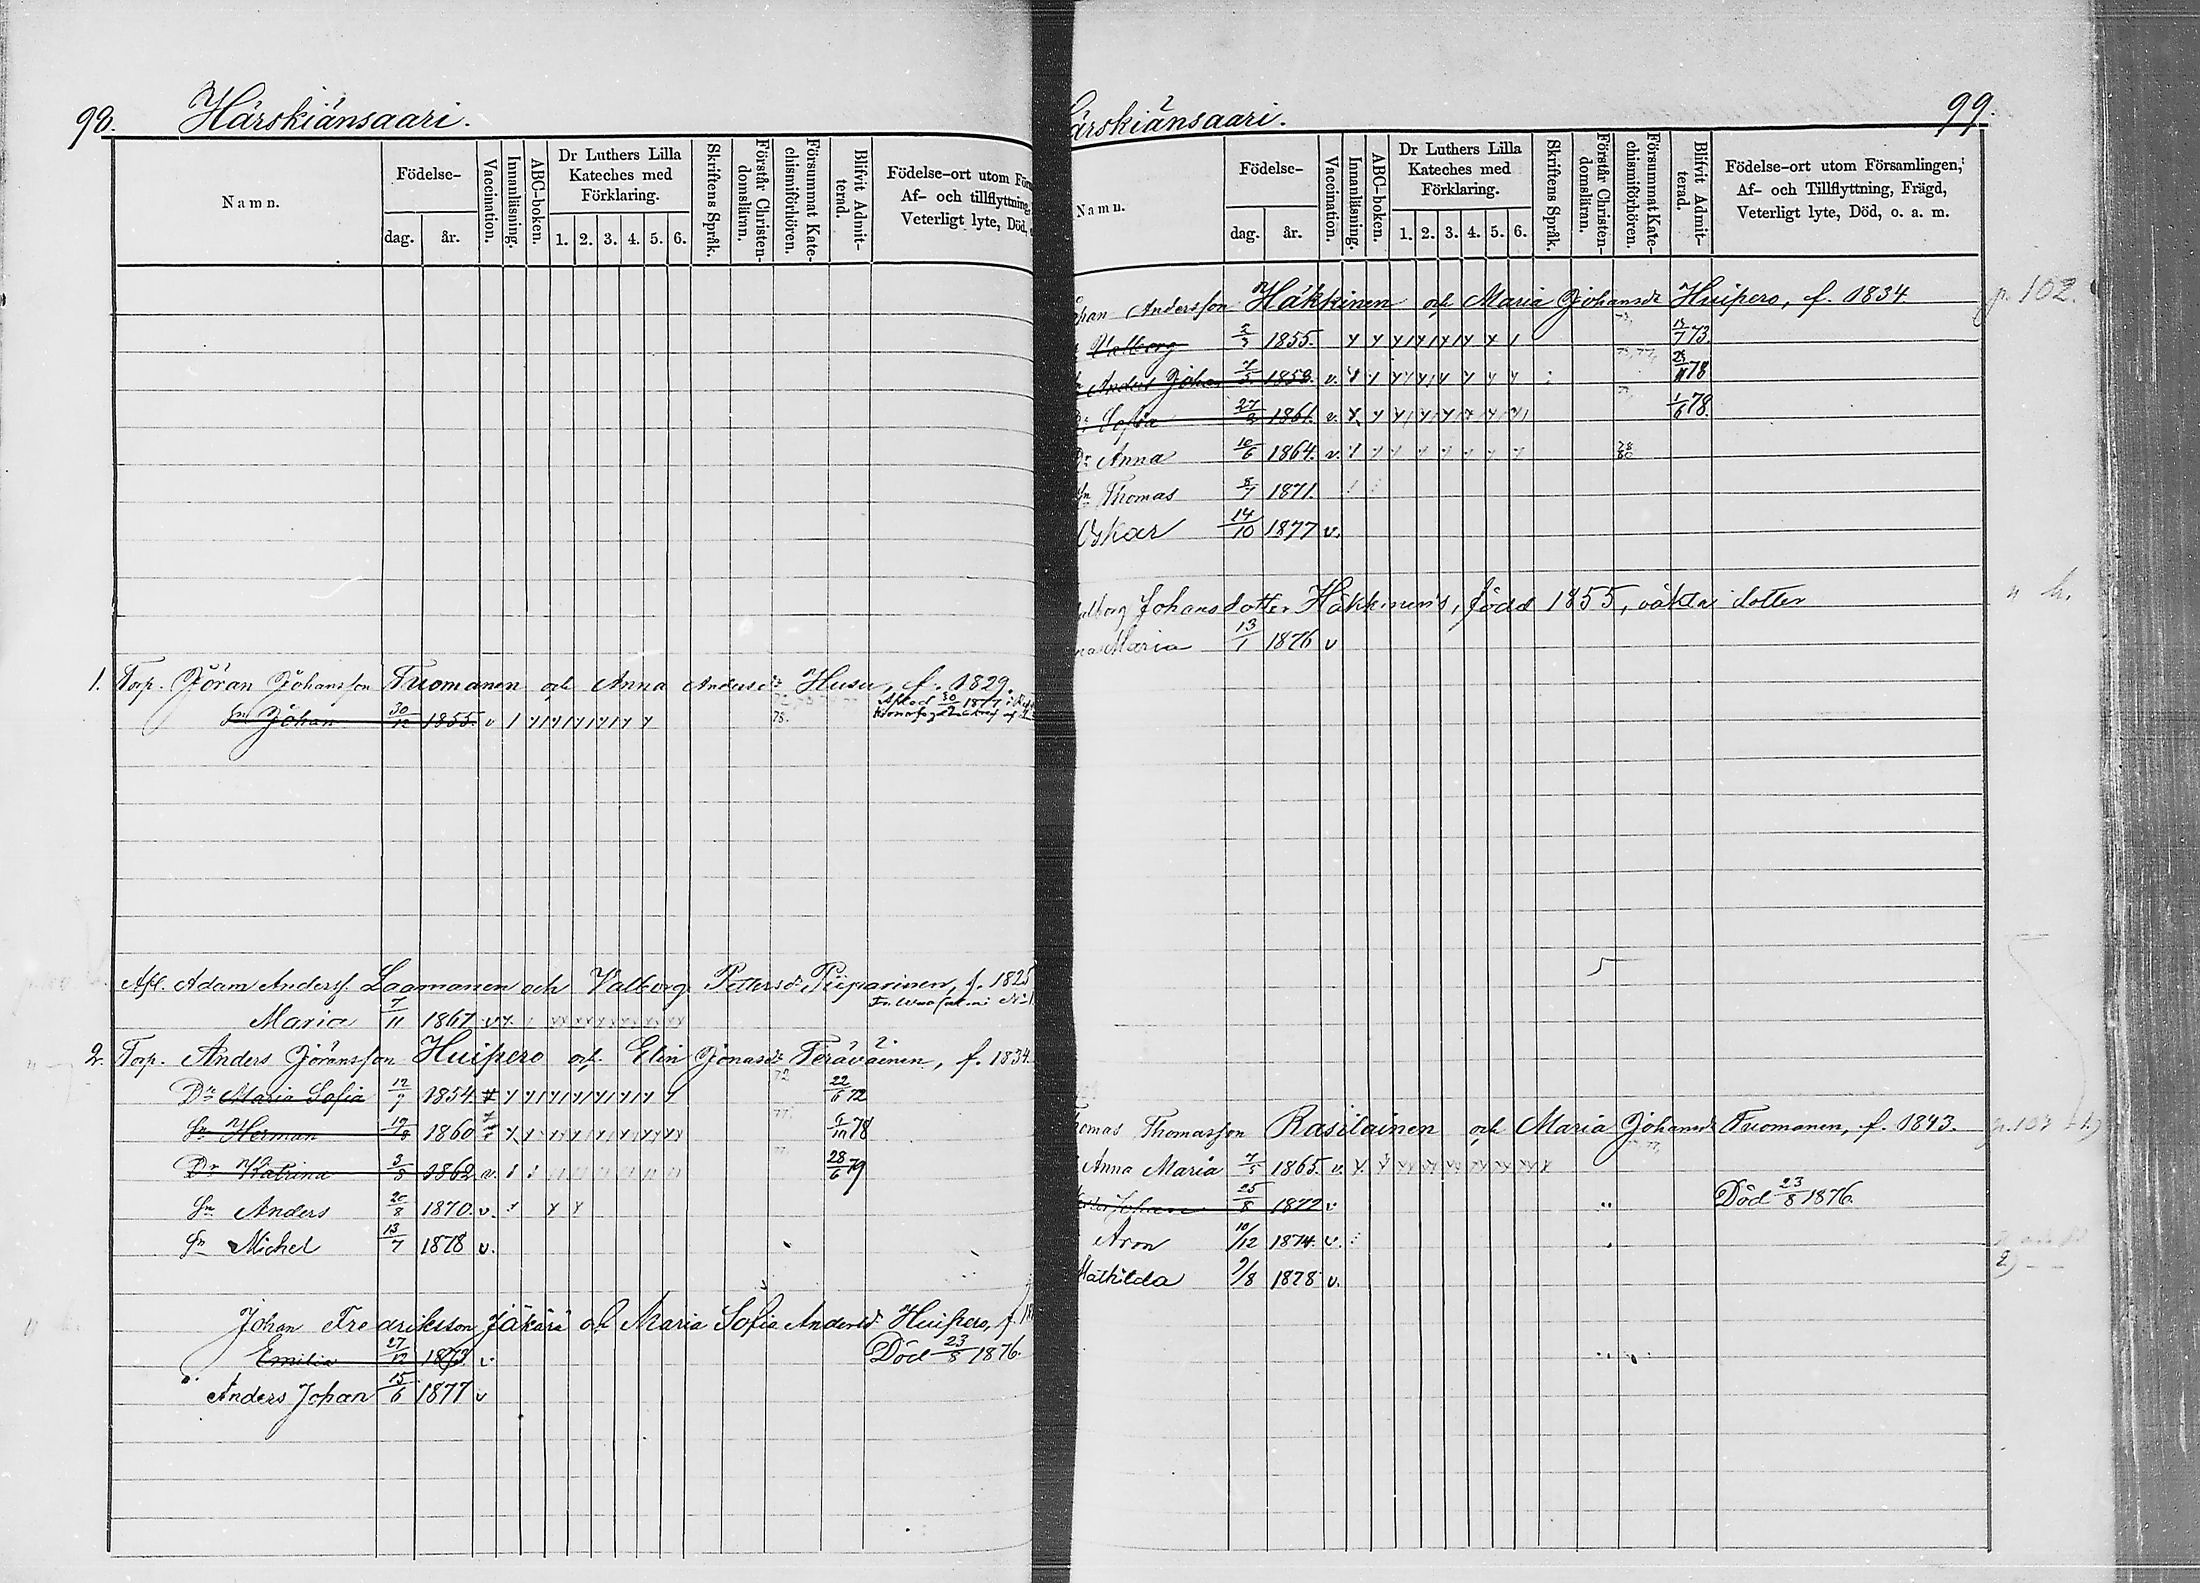 98. Härskiänsaari.
Namn. Födelse- dag. år. Vaccination. Innanläsning. ABC-boken. Dr Luthers Lilla Kateches med Förklaring. 1. 2. 3. 4. 5. 6. Skriftens Språk. Förstår Christen-domsläran. Försummat Kate-chismiförhören. Blifvit Admit-terad. Födelse-ort utom För Af- och tillflyttning, Veterligt lyte, Död,
1. Torp. Jöran Johansson Tuomanen och Anna Andersdr Husu, f. 1829.
Sn Johan 30/12 1855. v 75. Afled 30/2 1877
Afl. Adam Anderss. Laamanen och Valborg Pettersdr Piiparinen, f. 1825
Maria 7/11 1867 v
2. Torp. Anders Jöransson Huipero och Elin Jonasdr Teräväinen, f. 1834.
Dr Maria Sofia 12/7 1854 72 22/6 72
Sn Herman 1860 78
Dr Katrina 3/8 1862 v. 28/6 79
Sn Anders 20/8 1870 v.
Sn Michel 13/7 1878 v.
Johan Fredriksson Jäkärä och Maria Sofia Andersdr Huipero, f. 18
Emilia 27/12 1873 v. Död 23/8 1876.
Anders Johan 15/6 1877 v
ärskiänsaari. 99.
Namn. Födelse- dag. år. Vaccination. Innanläsning. ABC-boken. Dr Luthers Lilla Kateches med Förklaring. 1. 2. 3. 4. 5. 6. Skriftens Språk. Förstår Christen-domsläran. Försummat Kate-chismiförhören. Blifvit Admit-terad. Födelse-ort utom Församlingen, Af- och Tillflyttning, Frägd, Veterligt lyte, Död, o. a. m.
ohan Andersson Häkkinen och Maria Johansdr Huipero, f. 1834 p. 102.
Valborg 2/3 1855. 73.
Anders Johan 1858. v. 78
Dr Sofia 27/2 1861. v. 1/6 78.
Dr Anna 10/6 1864. v. 78 80
Sn Thomas 8/7 1871.
Oskar 14/10 1877 v.
alborg Johansdotter Häkkinen's, född 1855, oäkta dotter
na Maria 13/1 1876 v
homas Thomasson Rasilainen och Maria Johansdr Tuomanen, f. 1843.
Anna Maria 7/5 1865. v.
Johan 25/8 1872 v Död 23/8 1876.
Aron 10/12 1874. v.
Mathilda 9/8 1878 v.